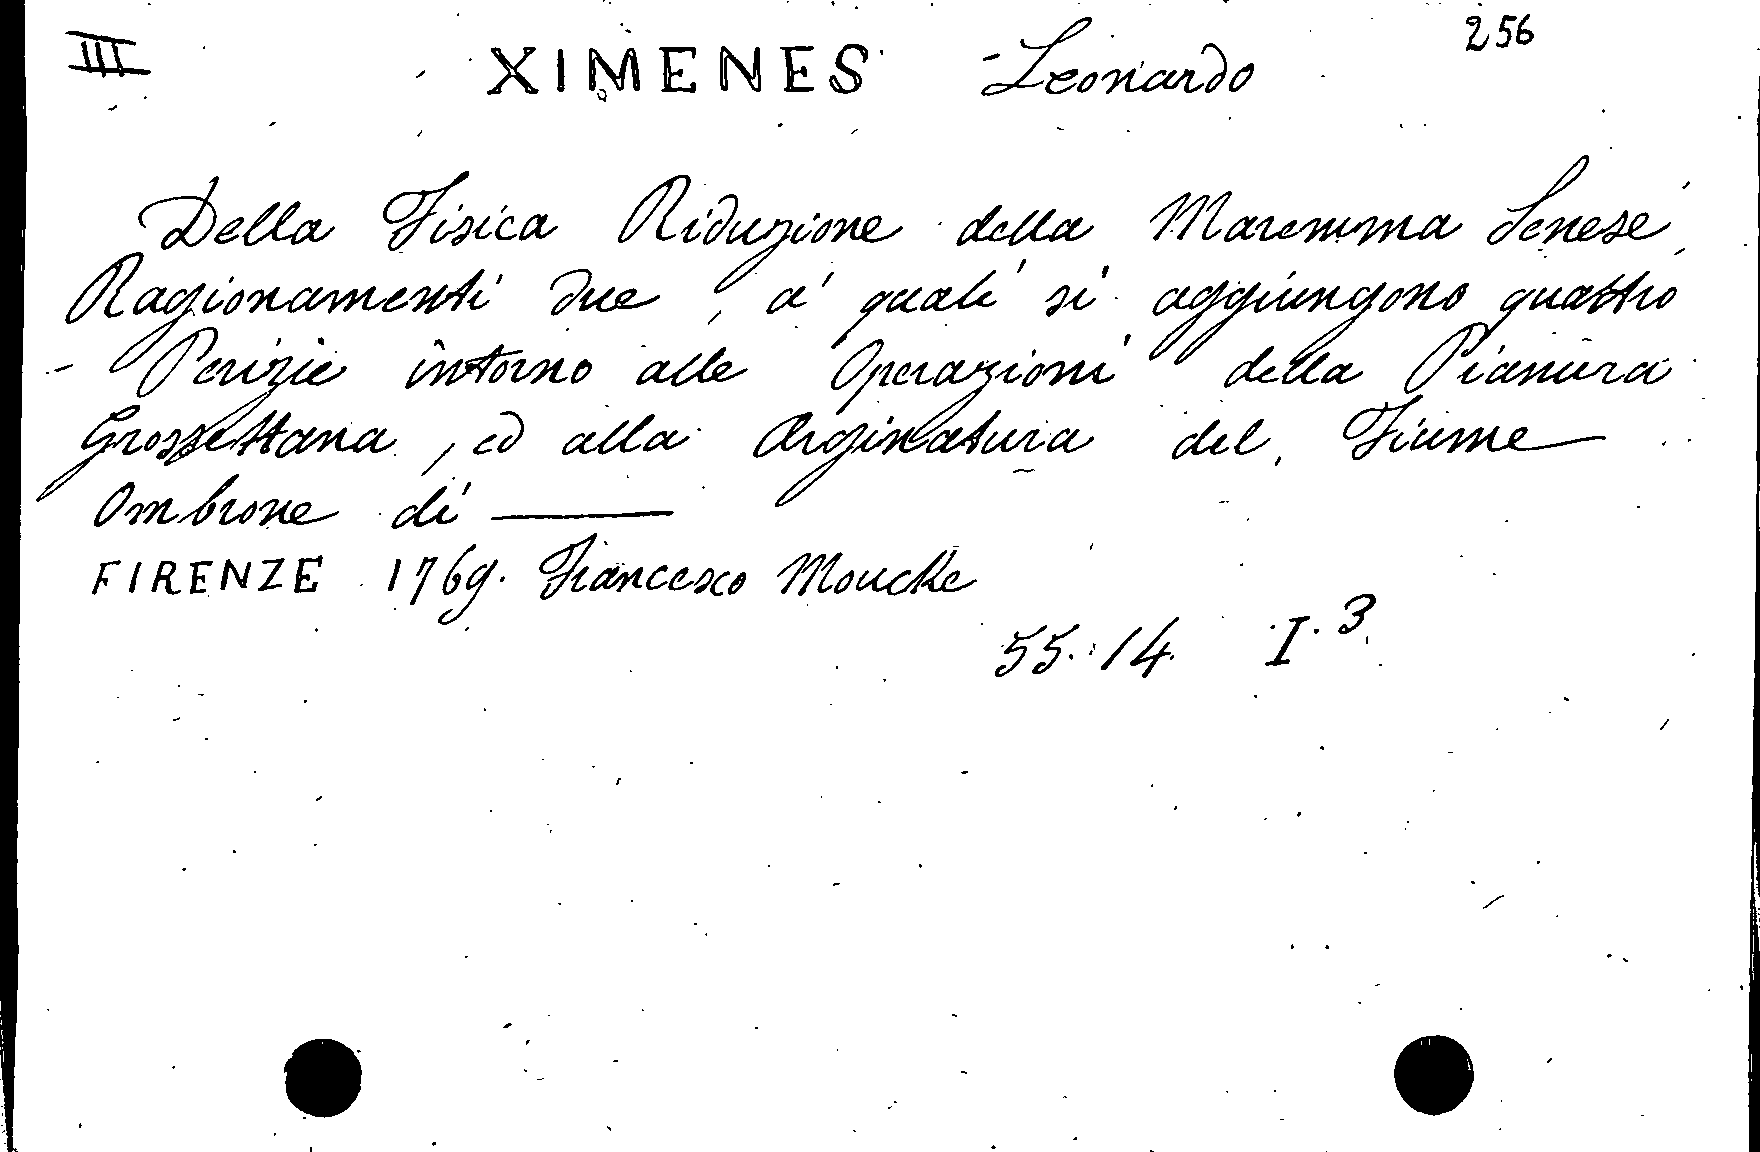 III XIMENES - Leonardo 256
Della Fisica Riduzione della Maremma Senese
Ragionamenti due, a' quali si aggiungono quattro
- Perizie intorno alle Operazioni della Pianura
Grossettana, ed alla Arginatura del Fiume
Ombrone di ———
FIRENZE 1769. Francesco Moucke
55. 14. I. 3